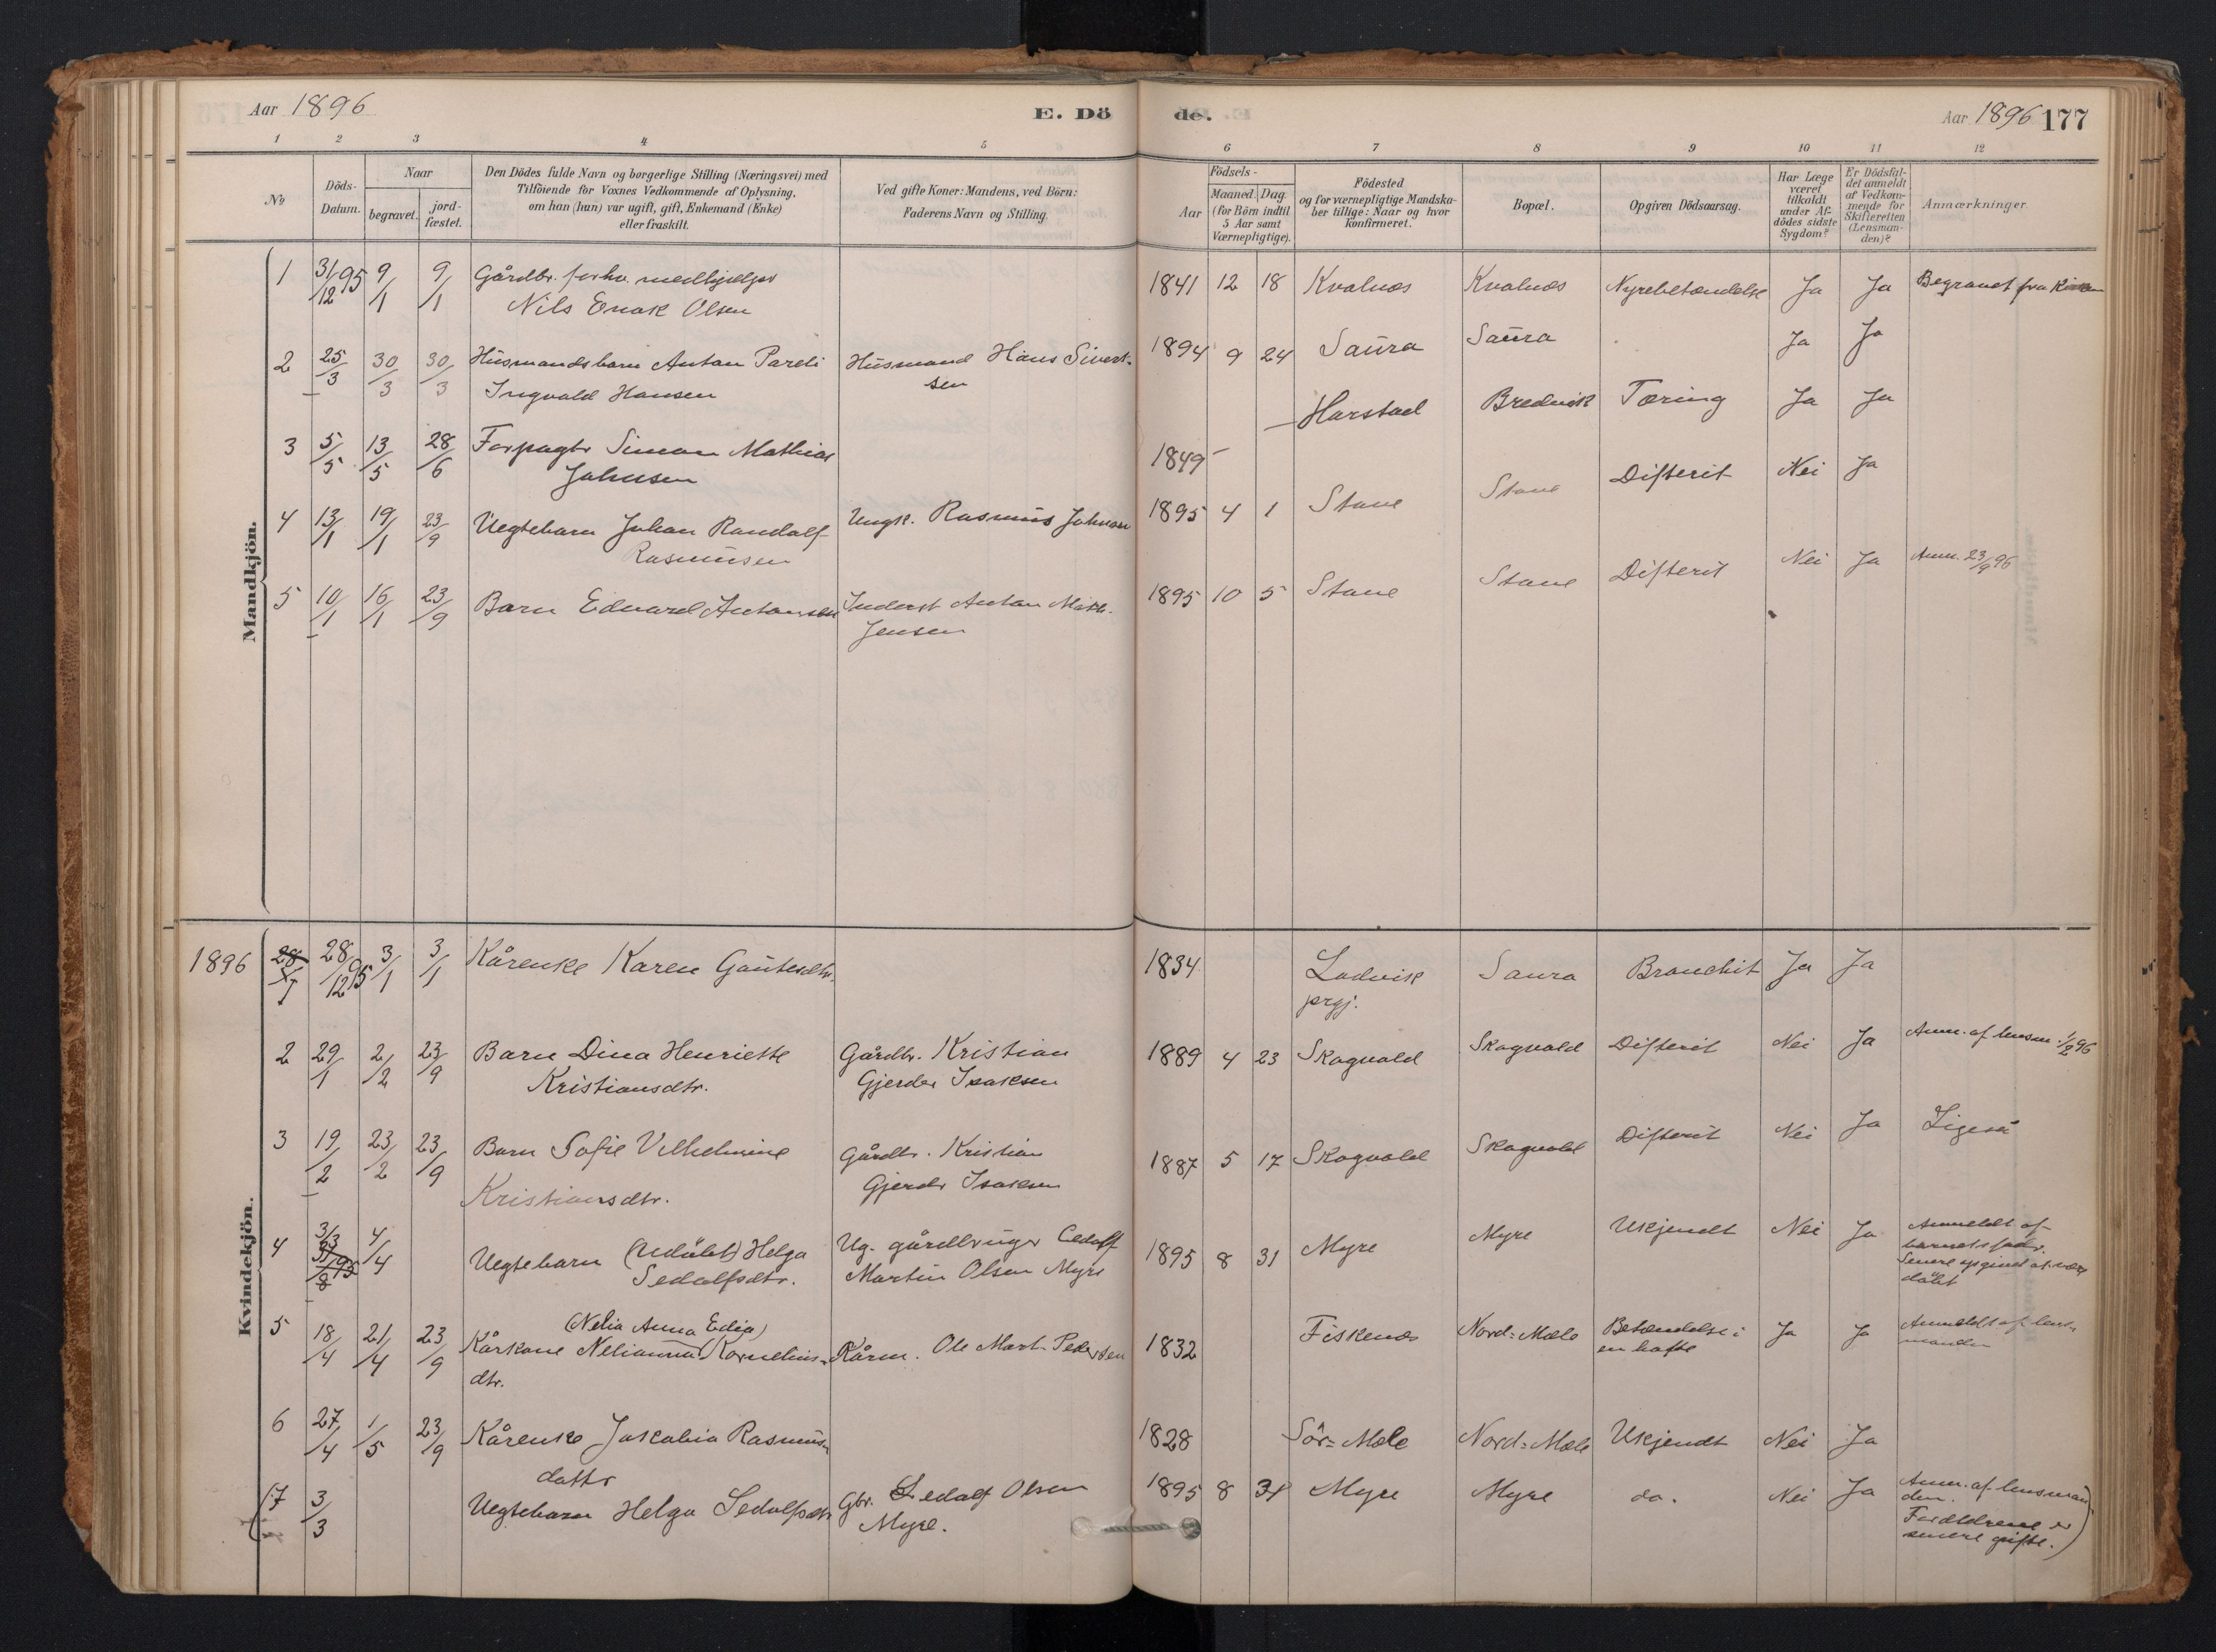 Aar 1896 E. Dö de. Aar 1896 177
1 2 3 4 5 6 7 8 9 10 11 12
№
Döds-
Datum.
Naar
begravet.
jord-
fæstet.
Den Dödes fulde Navn og borgerlige Stilling (Næringsvei) med
Tilföiende for Voxnes Vedkommende af Oplysning,
om han (hun) var ugift, gift, Enkemand (Enke)
eller fraskilt.
Ved gifte Koner: Mandens, ved Börn:
Faderens Navn og Stilling.
Födsels-
Aar
Maaned. Dag.
(for Börn indtil
5 Aar samt
Værnepligtige).
Födested
og for værnepligtige Mandska-
ber tillige: Naar og hvor
konfirmeret.
Bopæl.
Opgiven Dödsaarsag.
Har Læge
været
tilkaldt
under Af-
dödes sidste
Sygdom?
Er Dödsfal-
det anmeldt
af Vedkom-
mende for
Skifteretten
(Lensman-
den)?
Anmærkninger.
Mandkjön.
1 31/12 95 9/1 9/1 Gårdbr. forhv. medhjelper 1841 12 18 Kvalnæs Kvalnæs Nyrebetændelse Ja Ja Begravet fra
Nils Enok Olsen
2 25/3 30/3 30/3 Husmandsbarn Anton Pareli Husmand Hans Sivert- 1894 9 24 Saura Saura Ja Ja
Ingvald Hansen sen
Harstad Bredvik Tæring Ja Ja
3 5/5 13/5 28/6 Forpagtr Simon Mathias 1849 –
Johnsen
4 13/1 19/1 23/9 Uegtebarn Johan Randolf Ungk. Rasmus Johnsen 1895 4 1 Stave Stave Difterit Nei Ja
Rasmusen
5 10/1 16/1 23/9 Barn Edvard Antonsen Inderst Anton Math. 1895 10 5 Stave Stave Difterit Nei Ja Anm. 23/9 96
Jensen
Kvindekjön.
1896 28/1 28/12 95 3/1 3/1 Kårenke Karen Gautesdtr. 1834 Lødvik Saura Bronchit Ja Ja
prgj.
2 29/1 2/2 23/9 Barn Dina Henriette Gårdbr. Kristian 1889 4 23 Skogvold Skogvold Difterit Nei Ja Anm. af lensm. 1/2 96
Kristiansdtr. Gjerder Isaksen
3 19/2 23/2 23/9 Barn Sofie Vilhelmine Gårdbr. Kristian 1887 5 17 Skogvold Skogvold Difterit Nei Ja Ligeså
Kristiansdtr. Gjerdr Isaksen
4 3/3 31/8 95 4/4 Uegtebarn (Udøbt) Helga Ug. gårdbruger Sedolf 1895 8 31 Myre Myre Ukjendt Nei Ja Anmeldt af
Sedolfsdtr. Martin Olsen Myre barnets fadr.
Senere opgivet at være
døbt
5 18/4 21/4 23/9 (Nelia Anna Edia)
Kårkone Nelianna Kornelius- Kårm. Ole Mart. Pedersen 1832 Fiskenæs Nord-Mæle Betændelse i Ja Ja Anmeldt af lens-
dtr. en hofte manden
6 27/4 1/5 23/9 Kårenke Jakobia Rasmus- 1828 Sör-Mæle Nord-Mæle Ukjendt Nei Ja
dattr
(7 3/3 Uegtebarn Helga Sedolfsdtr Gbr. Sedolf Olsen 1895 8 31 Myre Myre do. Nei Ja Anm. af lensman
Myre. den.
Forældrene er
senere gifte.)